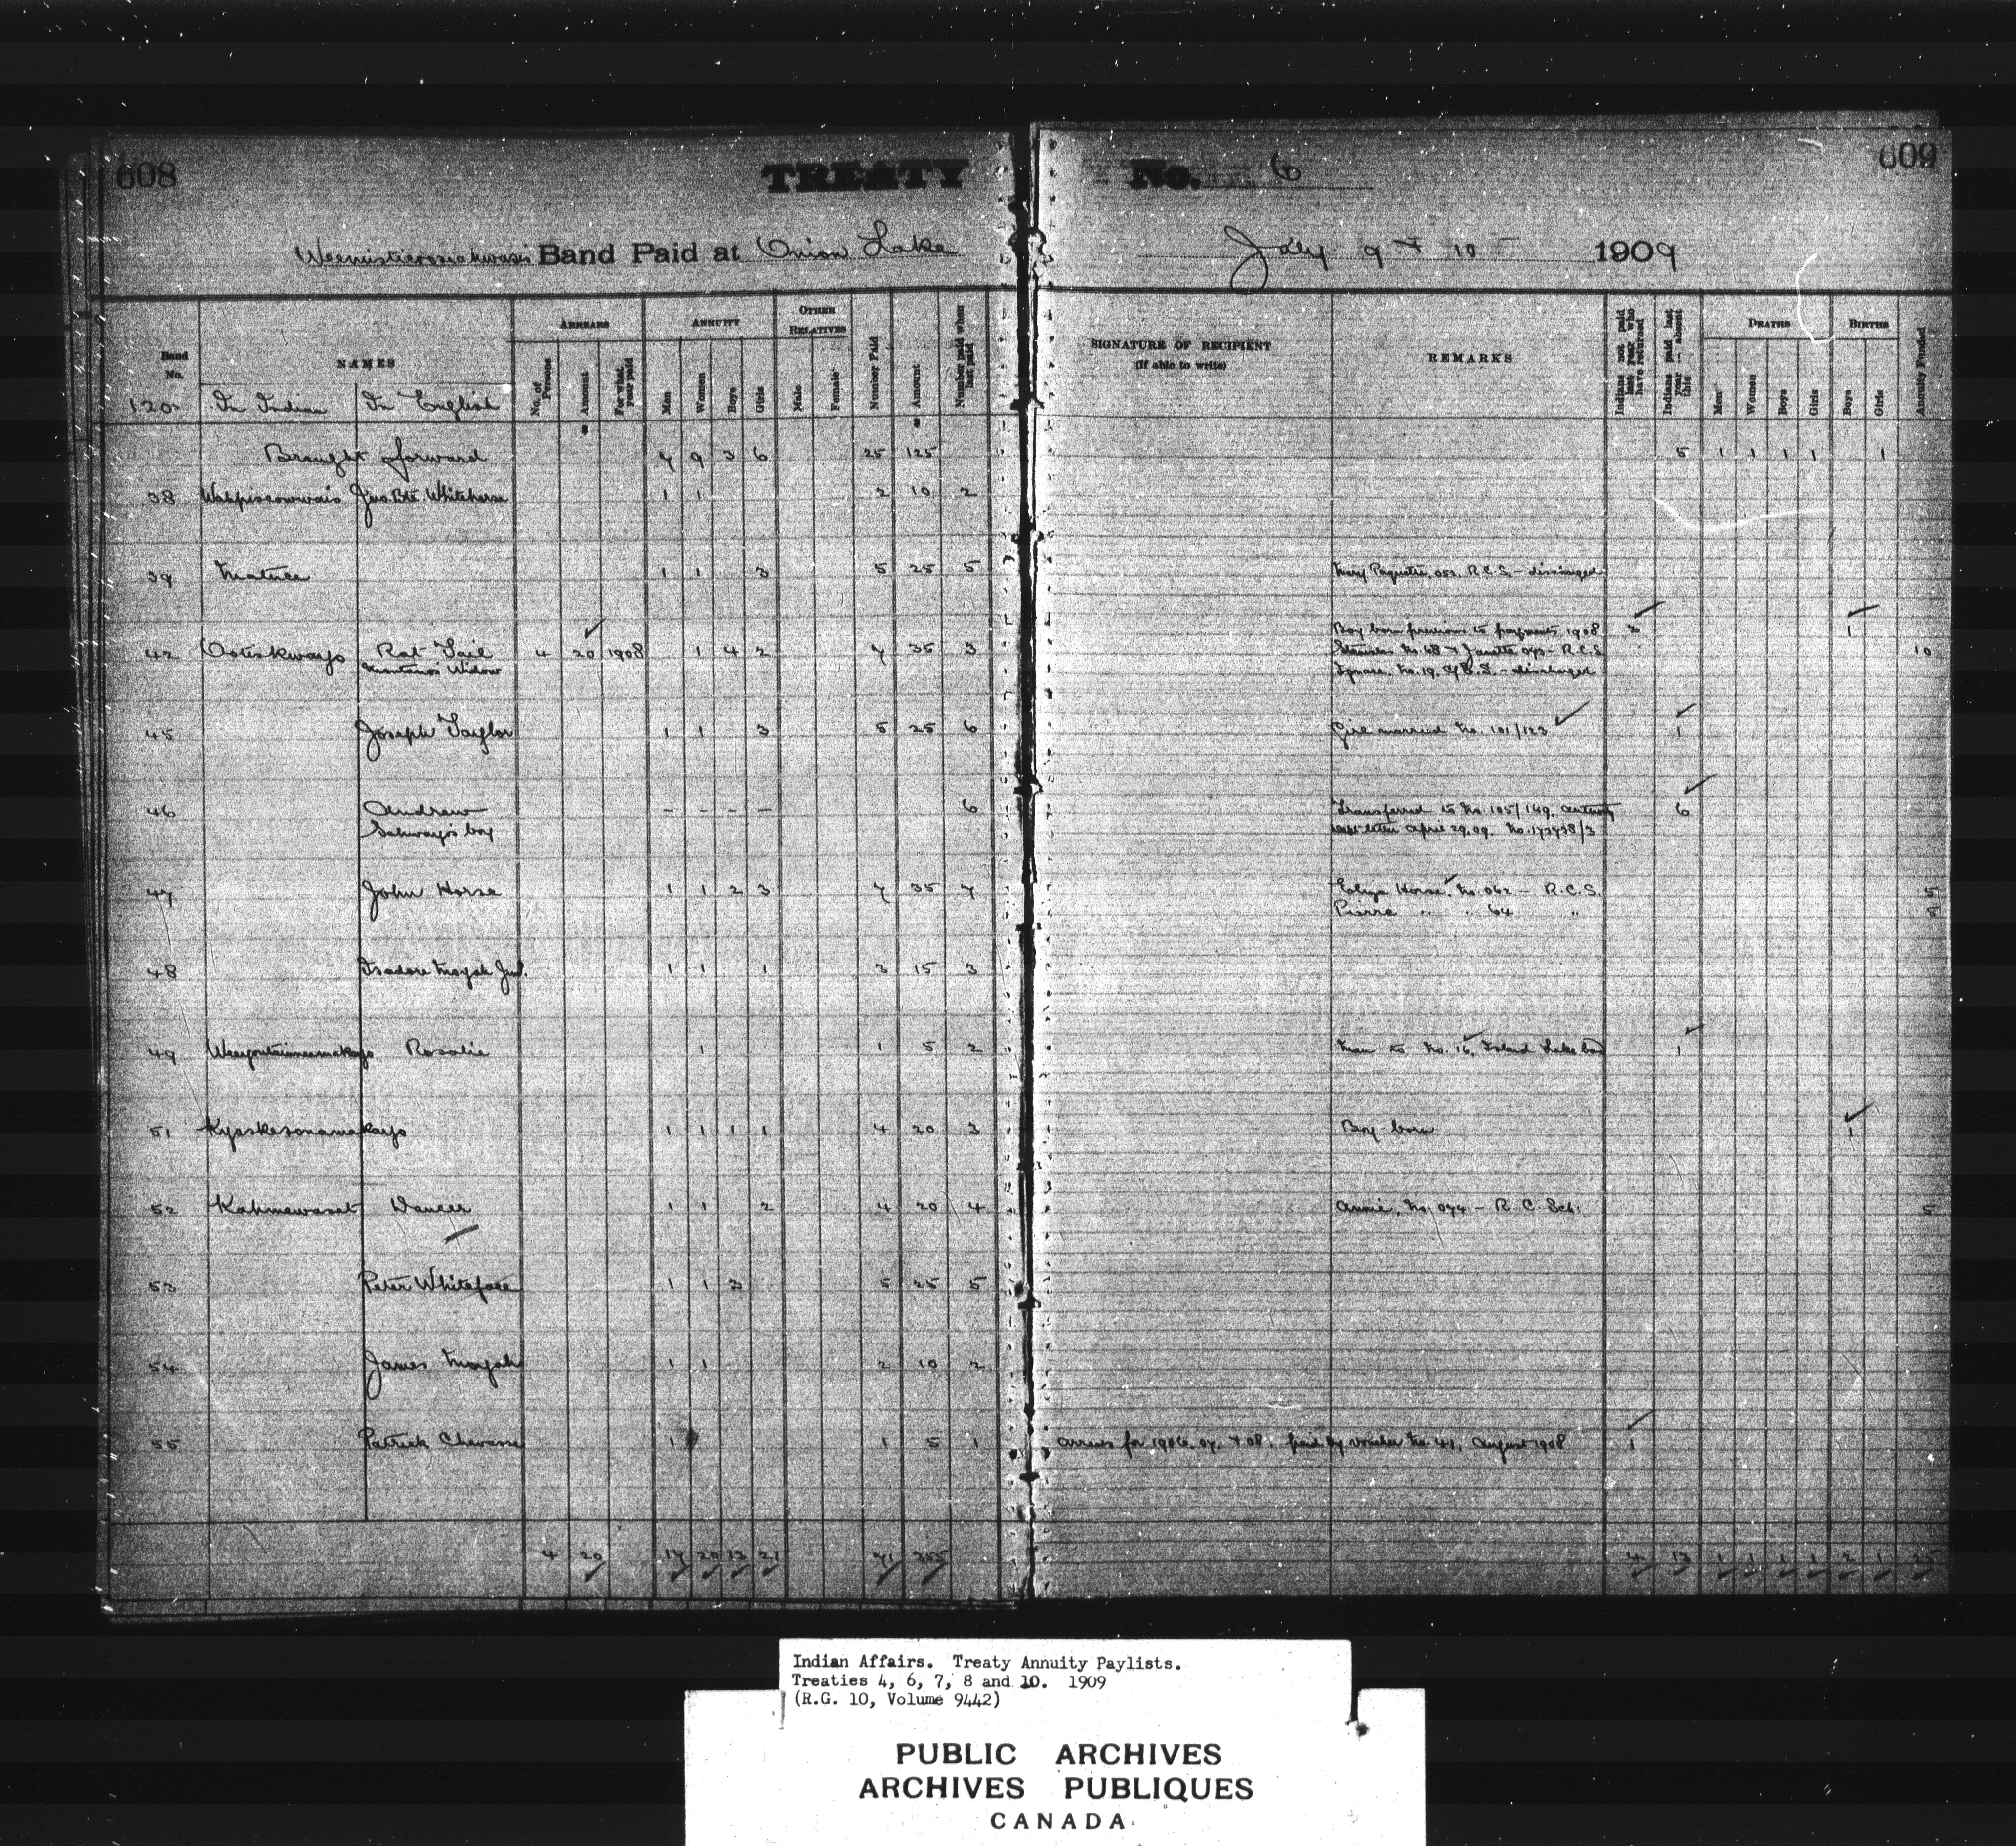 608
TREATY No. 6
609
Weemisticooseahwasis Band Paid at Onion Lake July 9 & 10 1909
Band No.
NAMES
ARREARS
ANNUITY
OTHER RELATIVES
Number Paid
Amount
Number paid when last paid
SIGNATURE OF RECIPIENT
(If able to write)
REMARKS
Indians not paid last year who have returned
Indians paid last year - absent this
DEATHS
BIRTHS
Annuity Funded
120 In Indian In English
No. of Persons Amount For what year paid Men Women Boys Girls Male Female
Men Women Boys Girls Boys Girls
Brought forward 7 9 3 6 25 125 5 1 1 1 1 1
38 Jno. Bte. Whitehorse 1 1 2 10 2
39 Matuce 1 1 3 5 25 5 Mary Paquette, 052, R.C.S. – discharged
Boy born previous to payments 1908 3 1
42 Ooteskwayo Rat Tail 4 20 1908 1 4 2 7 35 3 Stanislas No. 68 & Janette 073 – R.C.S. 10
Widow Ignace, No. 19, C.E.S. – discharged
45 Joseph Taylor 1 1 3 5 25 6 Girl married No. 101/123 1
46 Andrew – – – – 6 Transferred to No. 105/149, authority 6
Sahwayo's boy letter April 29.09. No. 172738/3
47 John Horse 1 1 2 3 7 35 7 Eliza Horse, No. 062 – R.C.S. 5
Pierre " " 64 " 5
48 Isadore Moyah Jnr. 1 1 1 3 15 3
49 Rosalie 1 1 5 2 Man to No. 16, Island Lake bad 1
51 Kyaskesonamakayo 1 1 1 1 4 20 3 Boy born 1
52 Kahmewasat Dancer 1 1 2 4 20 4 Annie, No. 074 – R.C. Sch. 5
53 Peter Whiteface 1 1 3 5 25 5
54 James Moyah 1 1 2 10 2
55 Patrick Chevasse 1 1 5 1 Arrears for 1906, 07, & 08, paid by voucher No. 41, August 1908 1
4 20 17 20 13 21 71 355 4 13 1 1 1 1 2 1 25
Indian Affairs. Treaty Annuity Paylists.
Treaties 4, 6, 7, 8 and 10. 1909
(R.G. 10, Volume 9442)
PUBLIC ARCHIVES
ARCHIVES PUBLIQUES
CANADA